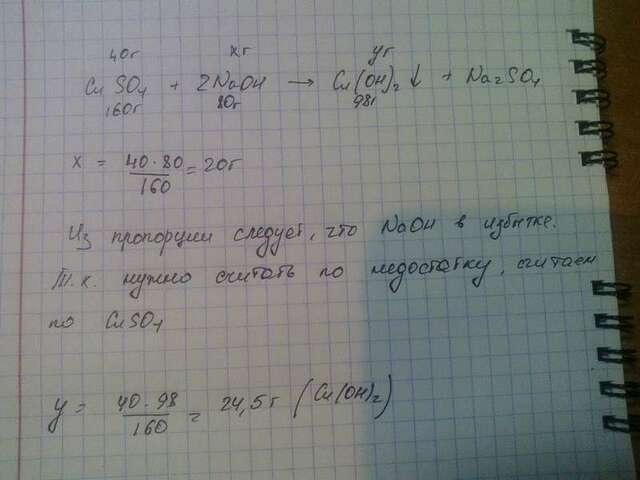 40г xг yг
CuSO4 + 2NaOH → Cu(OH)2↓ + Na2SO4
160г 80г 98г
x = 40·80/160 = 20г
Из пропорции следует, что NaOH в избытке.
Т.к. нужно считать по недостатку, считаем
по CuSO4
y = 40·98/160 = 24,5г (Cu(OH)2)